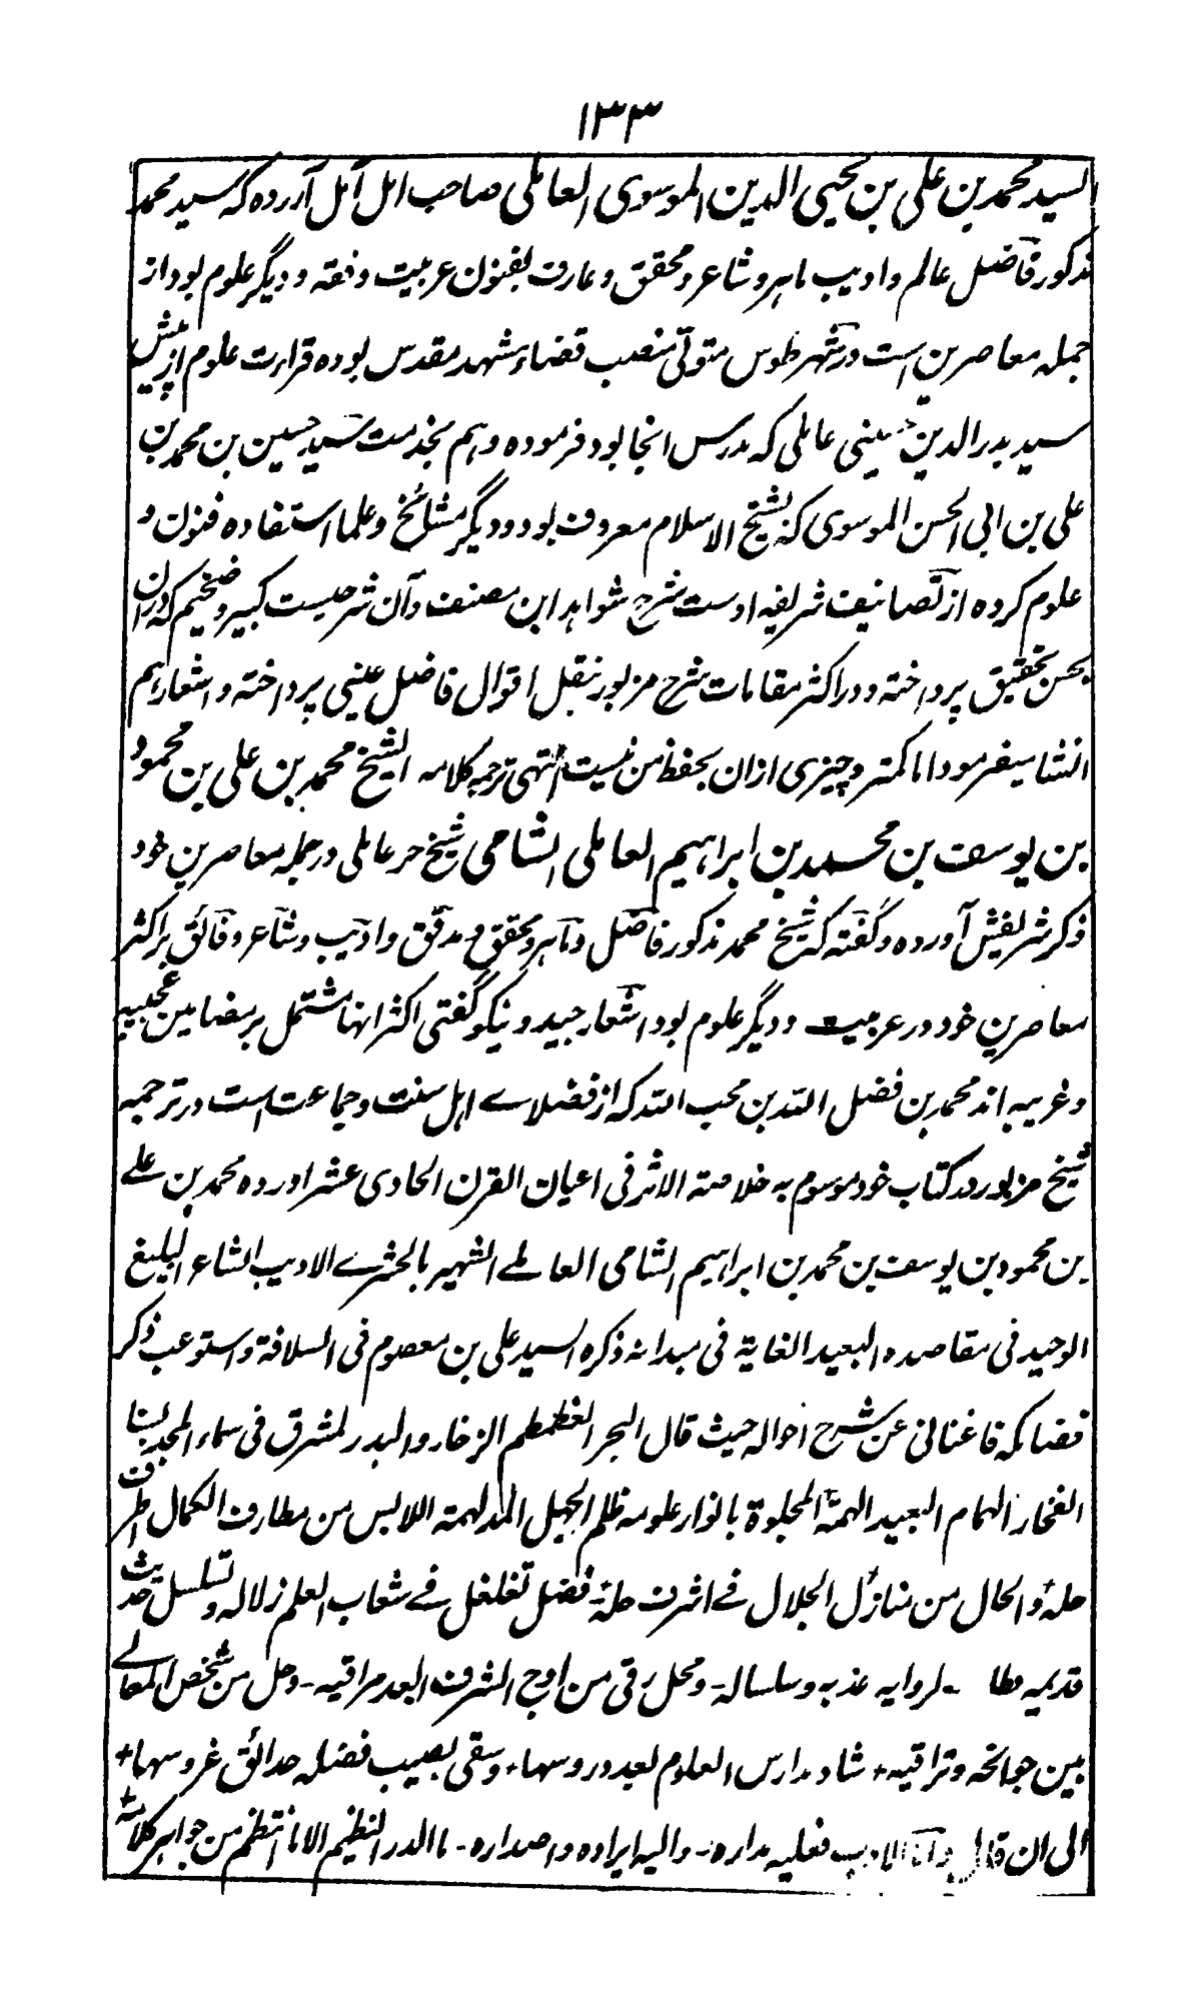 ١٣٣
السید محمد بن علی بن محیی الدین الموسوی العاملی صاحب امل آمل آورده که سید محمد
مذکور فاضل عالم و ادیب ماهر و شاعر و محقق و عارف بفنون عربیت و فقه و دیگر علوم بود از
جمله معاصرین است در شهر طوس متولّی منصب قضاء مشهد مقدس بوده قراءت علوم از پیش
سید بدر الدین حسینی عاملی که مدرس انجا بود فرموده و هم بخدمت سید حسین بن محمد بن
علی بن ابی الحسن الموسوی که بشیخ الاسلام معروف بود و دیگر مشائخ و علما استفاده فنون و
علوم کرده از تصانیف شریفه اوست شرح شواهد ابن مصنف و آن شرحیست کبیر و ضخیم که دران
بحسن تحقیق پرداخته و در اکثر مقامات شرح مزبور بنقل اقوال فاضل عینی پرداخته و اشعار هم
انشا میفرمود اما کمتر و چیزی ازان بحفظ من نیست انتهی ترجمه کلامه الشیخ محمد بن علی بن محمود
بن یوسف بن محمد بن ابراهیم العاملی الشامی شیخ حر عاملی در جمله معاصرین خود
ذکر شریفش آورده و گفته که شیخ محمد مذکور فاضل و ماهر و محقق و مدقق و ادیب و شاعر و فائق بر اکثر
معاصرین خود در عربیت و دیگر علوم بود اشعار جید و نیکو گفتی اکثر انها مشتمل بر مضامین عجیبه
و غریبه اند محمد بن فضل الله بن محب الله که از فضلاے اهل سنت و جماعت است در ترجمه
شیخ مزبور در کتاب خود موسوم به خلاصة الاثر فی اعیان القرن الحادی عشر اورده محمد بن علے
بن محمود بن یوسف بن محمد بن ابراهیم الشامی العاملے الشهیر بالحشرے الادیب الشاعر البلیغ
الوحید فی مقاصده البعید الغایة فی میدانه ذکره السید علی بن معصوم فی السلافة و استوعب ذکر
فضائله فاغنانی عن شرح احواله حیث قال البحر الغطمطم الزخار و البدر المشرق فی سماء المجد بسنا
الفخار الهمام البعید الهمة المجلوة بانوار علومه ظلم الجهل المدلهمة اللابس من مطارف الکمال اظرف
حلة و الحال من منازل الجلال فے اشرف حلة فضل تغلغل فے شعاب العلم زلاله و تسلسل حدیث
قدیمه فطا لروایه عذبه و سلساله - و محل رقی من اوج الشرف ابعد مراقیه - و حل من شخص المعالے
بین جوانحه و تراقیه + شاد مدارس العلوم بعد دروسها، و سقی بصیب فضله حدائق غروسها +
الی ان قال و اما الادب فعلیه مداره - و الیه ایراده و اصداره - ما الدر النظیم الا ما انتظم من جواهر کلامه +